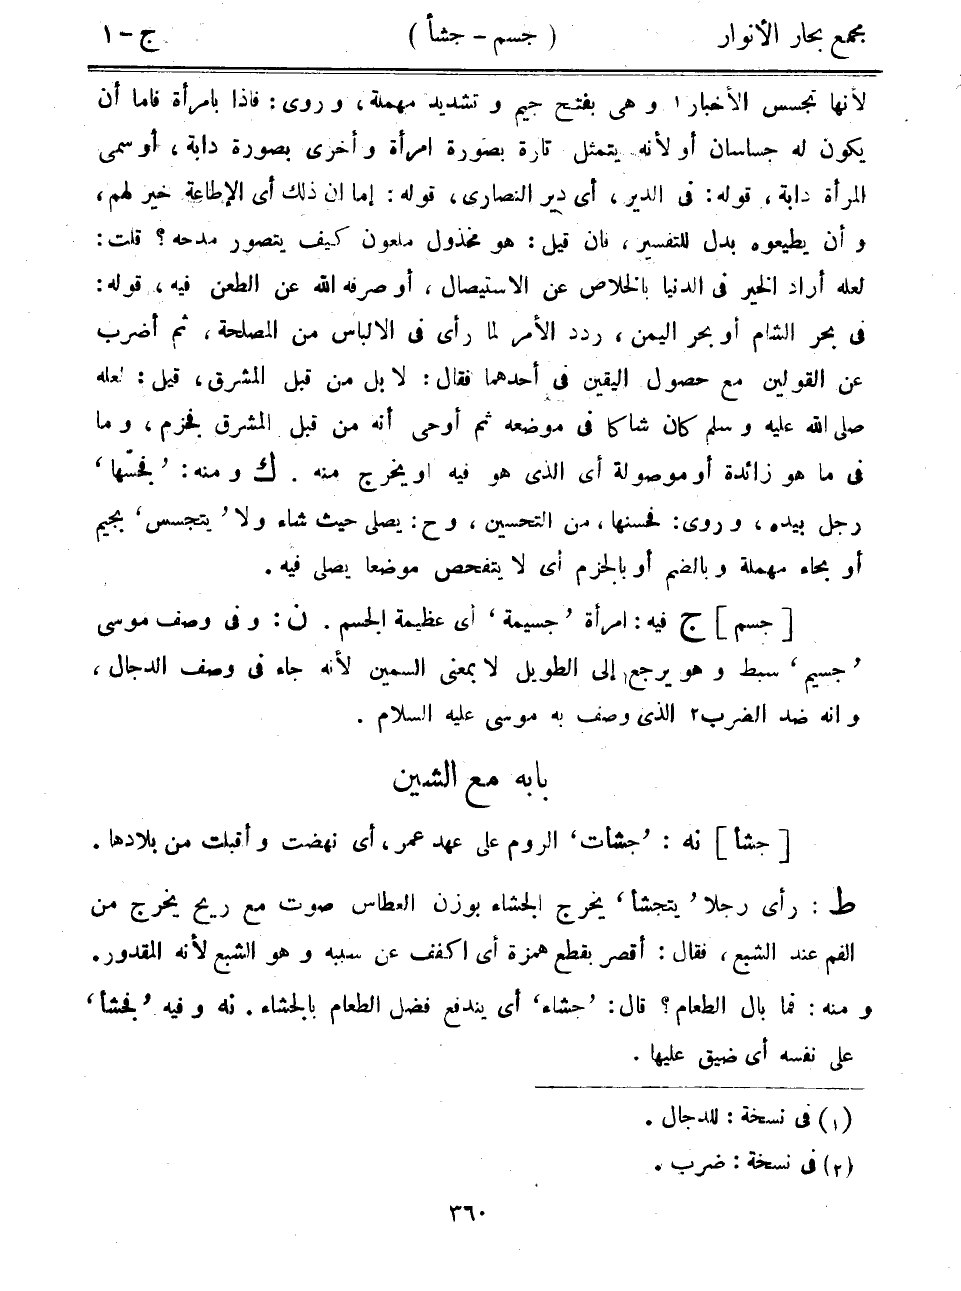 مجمع بحار الأنوار ( جسم - جشأ ) ج - ١
لأنها تجسس الأخبار١ و هى بفتح جيم و تشديد مهملة، و روى: فاذا بامرأة فاما أن
يكون له جساسان أو لأنه يتمثل تارة بصورة امرأة و أخرى بصورة دابة، أو سمى
المرأة دابة، قوله: فى الدير، أى دير النصارى، قوله: إما ان ذلك أى الإطاعة خير لهم،
و أن يطيعوه بدل للتفسير، فان قيل: هو مخذول ملعون كيف يتصور مدحه؟ قلت:
لعله أراد الخير فى الدنيا بالخلاص عن الاستيصال، أو صرفه الله عن الطعن فيه، قوله:
فى بحر الشام أو بحر اليمن، ردد الأمر لما رأى فى الالباس من المصلحة، ثم أضرب
عن القولين مع حصول اليقين فى أحدهما فقال: لا بل من قبل المشرق، قيل: لعله
صلى الله عليه و سلم كان شاكا فى موضعه ثم أوحى أنه من قبل المشرق فجزم، و ما
فى ما هو زائدة أو موصولة أى الذى هو فيه او يخرج منه . ك و منه: ’فجسّها‘
رجل بيده، و روى: فحسنها، من التحسين، و ح: يصلى حيث شاء ولا ’يتجسس‘ بجيم
أو بحاء مهملة و بالضم أو بالجزم أى لا يتفحص موضعا يصلى فيه .
[ جسم ] ج فيه: امرأة ’جسيمة‘ أى عظيمة الجسم . ن: و فى وصف موسى
’جسيم‘ سبط و هو يرجع إلى الطويل لا بمعنى السمين لأنه جاء فى وصف الدجال،
و انه ضد الضرب٢ الذى وصف به موسى عليه السلام .
بابه مع الشين
[ جشأ ] نه : ’جشأت‘ الروم على عهد عمر، أى نهضت و أقبلت من بلادها .
ط : رأى رجلا ’يتجشأ‘ يخرج الجشاء بوزن العطاس صوت مع ريح يخرج من
الفم عند الشبع، فقال: أقصر بقطع همزة أى اكفف عن سببه و هو الشبع لأنه المقدور .
و منه: فما بال الطعام؟ قال: ’جشاء‘ أى يندفع فضل الطعام بالجشاء . نه و فيه ’فجشأ‘
على نفسه أى ضيق عليها .
(١) فى نسخة : للدجال .
(٢) فى نسخة : ضرب .
٣٦٠